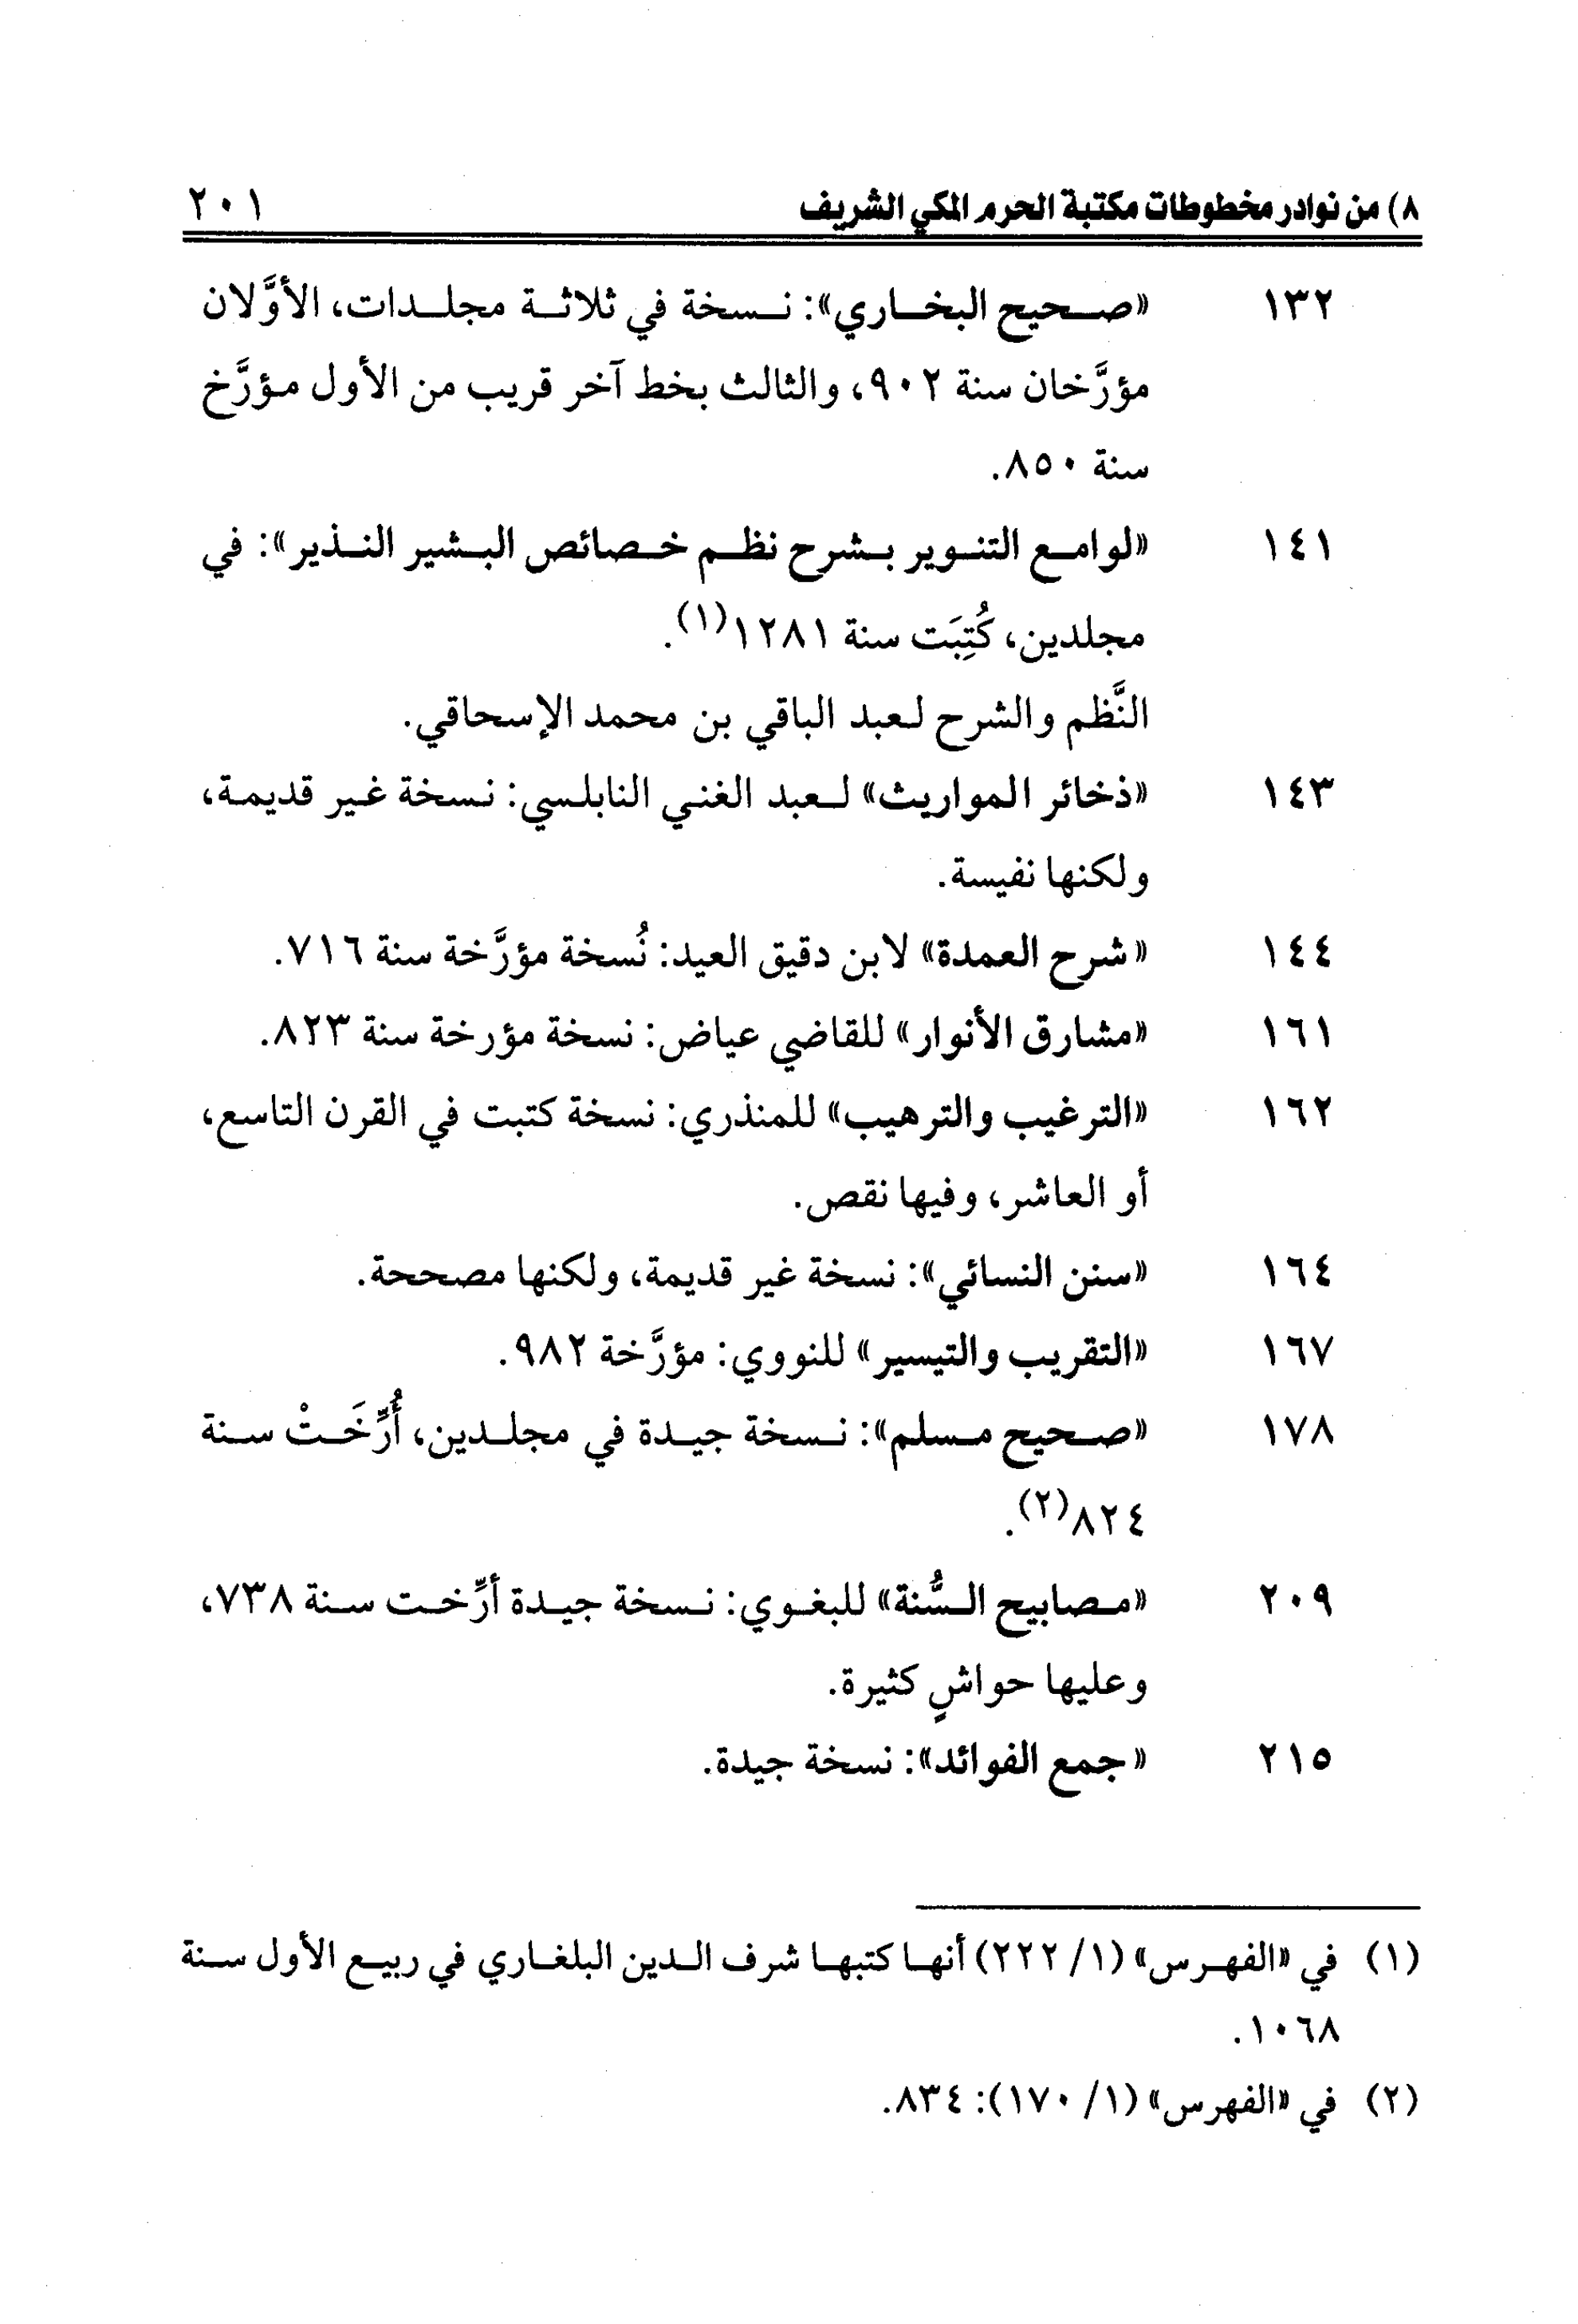 ٨) من نوادر مخطوطات مكتبة الحرم المكي الشريف ٢٠١
١٣٢ «صحيح البخاري»: نسخة في ثلاثة مجلدات، الأوَّلان
مؤرَّخان سنة ٩٠٢، والثالث بخط آخر قريب من الأول مؤرَّخ
سنة ٨٥٠.
١٤١ «لوامع التنوير بشرح نظم خصائص البشير النذير»: في
مجلدين، كُتِبَت سنة ١٢٨١(١).
النَّظم والشرح لعبد الباقي بن محمد الإسحاقي.
١٤٣ «ذخائر المواريث» لعبد الغني النابلسي: نسخة غير قديمة،
ولكنها نفيسة.
١٤٤ «شرح العمدة» لابن دقيق العيد: نُسخة مؤرَّخة سنة ٧١٦.
١٦١ «مشارق الأنوار» للقاضي عياض: نسخة مؤرخة سنة ٨٢٣.
١٦٢ «الترغيب والترهيب» للمنذري: نسخة كتبت في القرن التاسع،
أو العاشر، وفيها نقص.
١٦٤ «سنن النسائي»: نسخة غير قديمة، ولكنها مصححة.
١٦٧ «التقريب والتيسير» للنووي: مؤرَّخة ٩٨٢.
١٧٨ «صحيح مسلم»: نسخة جيدة في مجلدين، أُرِّخَتْ سنة
٨٢٤(٢).
٢٠٩ «مصابيح السُّنة» للبغوي: نسخة جيدة أرِّخت سنة ٧٣٨،
وعليها حواشٍ كثيرة.
٢١٥ «جمع الفوائد»: نسخة جيدة.
(١) في «الفهرس» (١/ ٢٢٢) أنها كتبها شرف الدين البلغاري في ربيع الأول سنة
١٠٦٨.
(٢) في «الفهرس» (١/ ١٧٠): ٨٣٤.